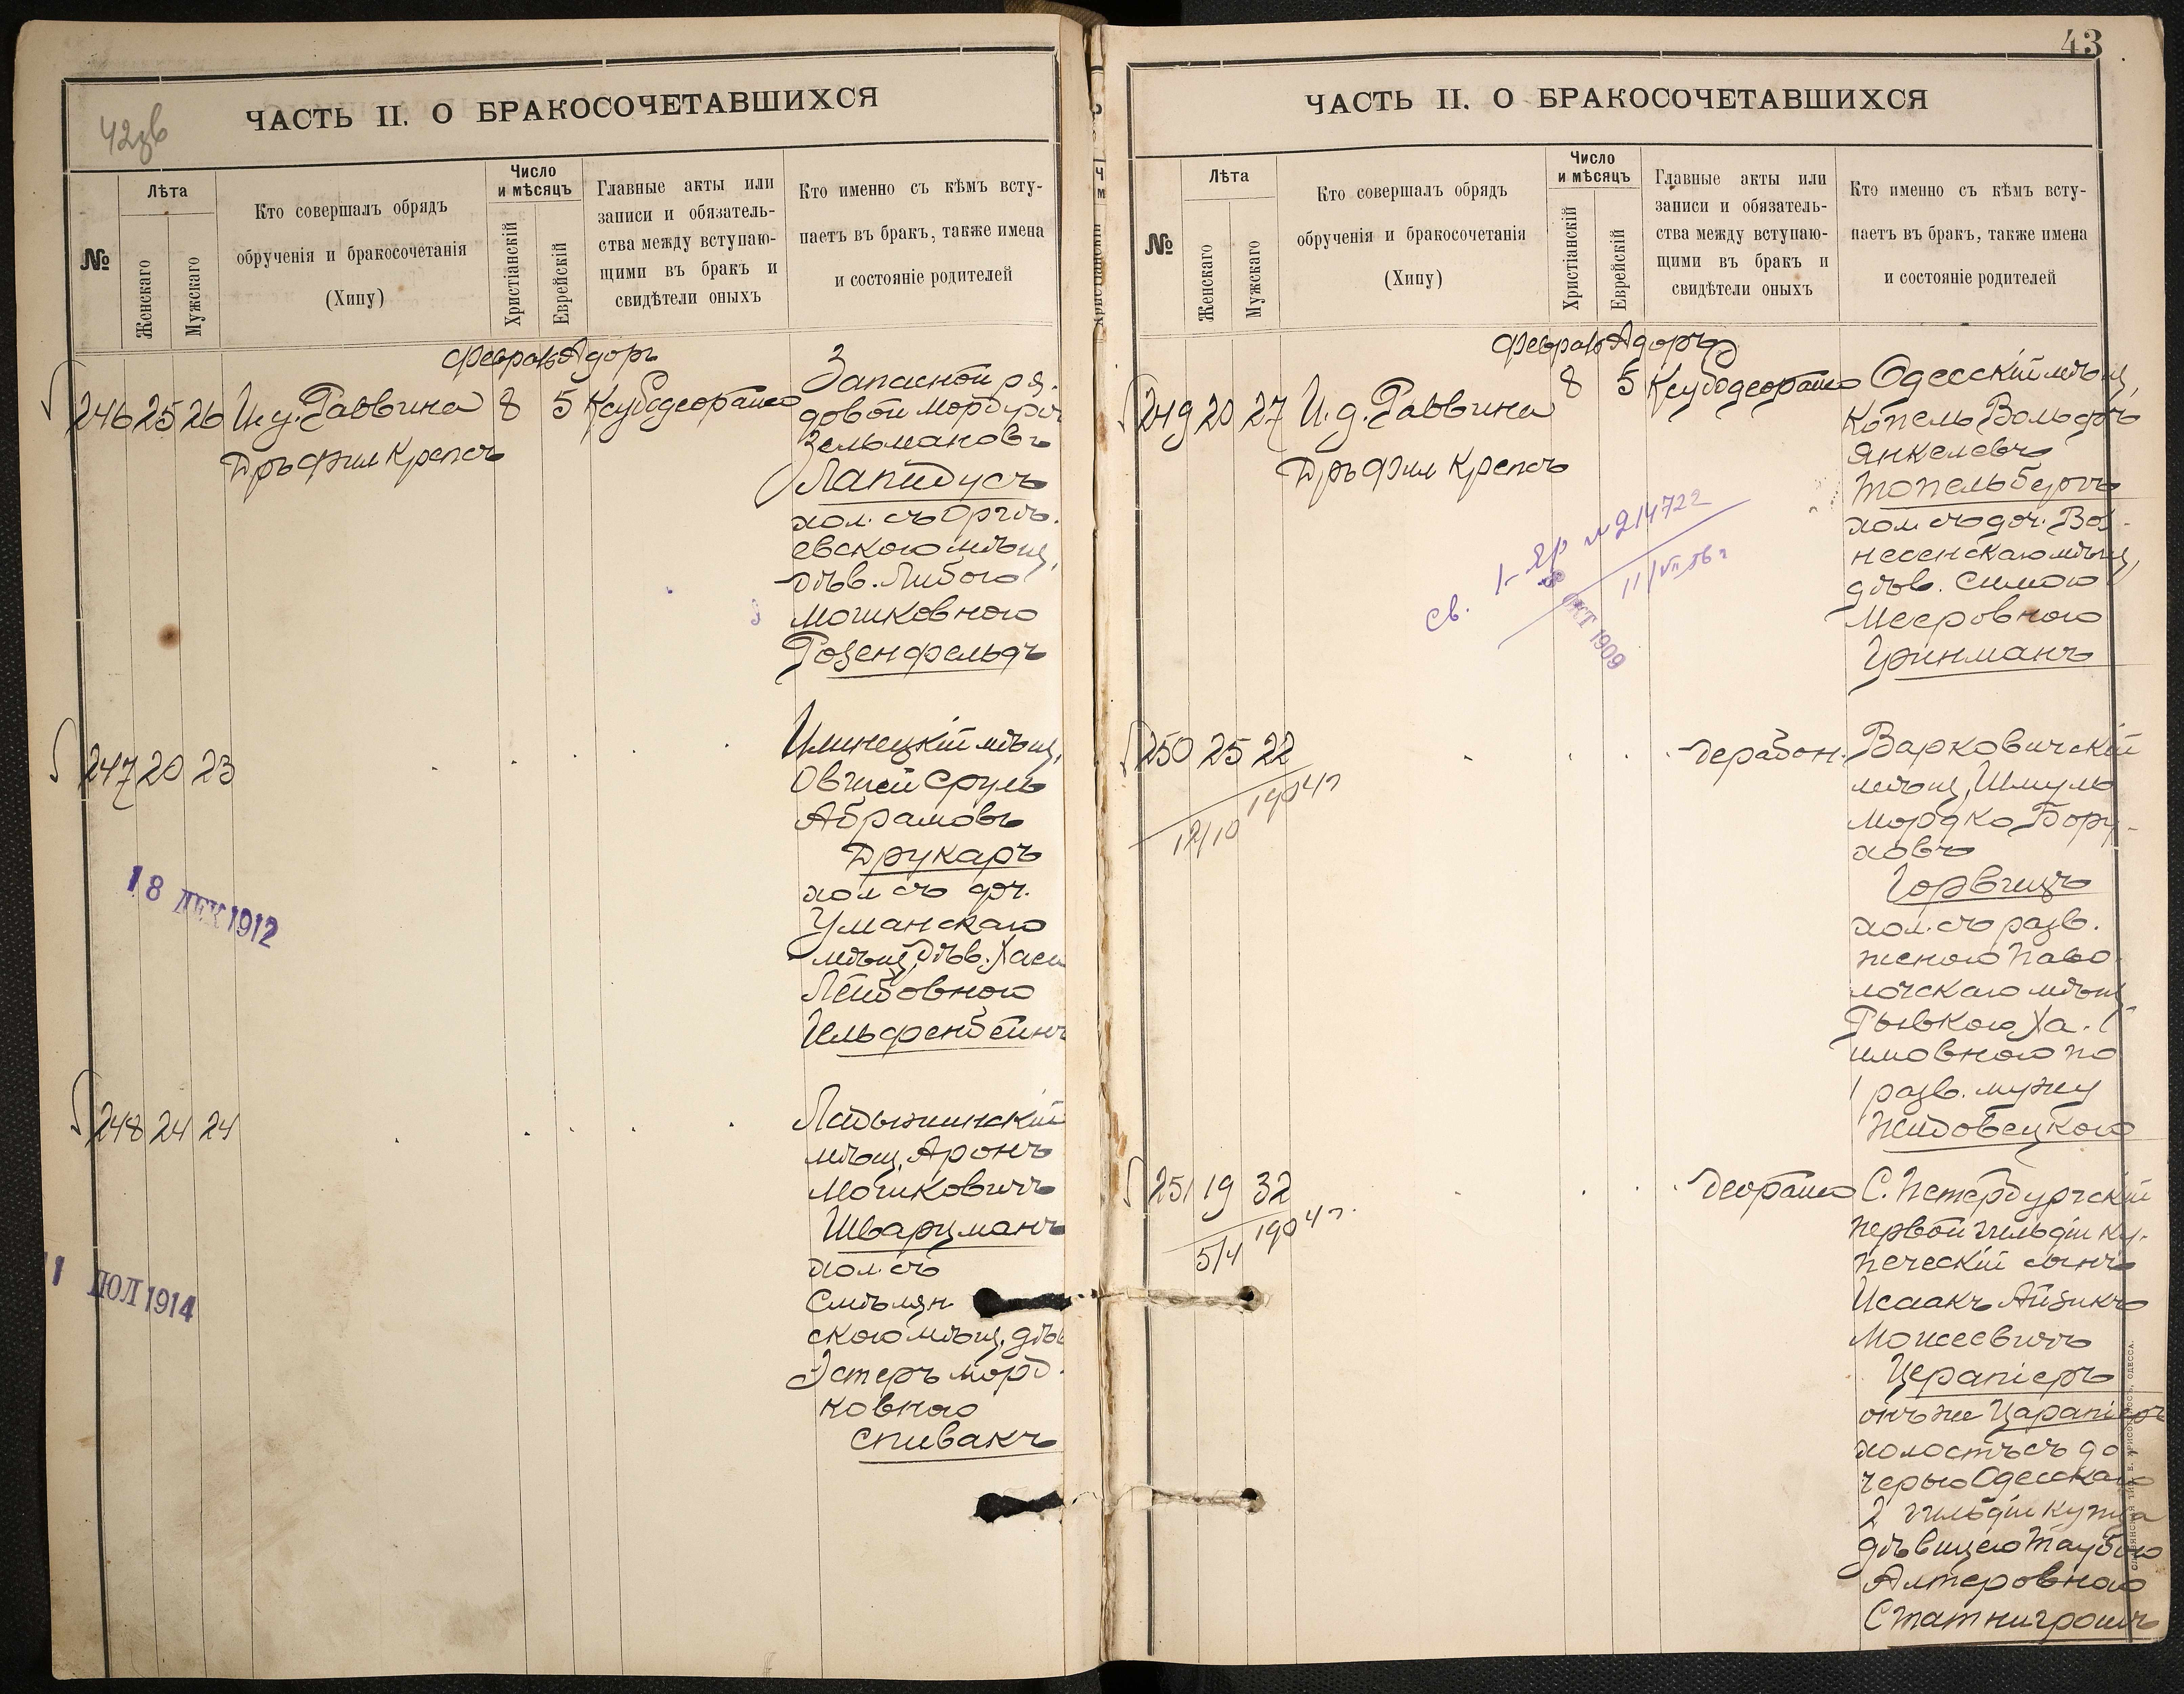 42зв
ЧАСТЬ II. О БРАКОСОЧЕТАВШИХСЯ
№
Лѣта
Женскаго
Мужскаго
Кто совершалъ обрядъ
обрученія и бракосочетанія
(Хипу)
Число
и мѣсяцъ
Христіанскій
Еврейскій
Главные акты или
записи и обязатель-
ства между вступаю-
щими въ бракъ и
свидѣтели оныхъ
Кто именно съ кѣмъ всту-
паетъ въ бракъ, также имена
и состояніе родителей
Февраль Адоръ
246 25 26 И. д. Раввина 8 5
Дръ Фил Крепсъ
Запасной ря-
довой Мордухъ
Зельмановъ
Лапидусъ
хол. съ Оргѣ-
евскою мѣщ.
дѣв. Либою
Мошковною
Розенфельдъ
247 20 23
Илинецкій мѣщ.
Овшей Сруль
Абрамовъ
Друкаръ
хол съ доч.
Уманскаго
мѣщ. дѣв. Хаей
Лейбовною
Гельфенбейнъ
18 ДЕК 1912
248 24 24
Ладыжинскій
мѣщ. Аронъ
Мошковичъ
Шварцманъ
хол. съ
Смѣлян
скою мѣщ. дѣв
Эстеръ Морд-
ковною
Спивакъ
1 ІЮЛ 1914
43
ЧАСТЬ II. О БРАКОСОЧЕТАВШИХСЯ
№
Лѣта
Женскаго
Мужскаго
Кто совершалъ обрядъ
обрученія и бракосочетанія
(Хипу)
Число
и мѣсяцъ
Христіанскій
Еврейскій
Главные акты или
записи и обязатель-
ства между вступаю-
щими въ бракъ и
свидѣтели оныхъ
Кто именно съ кѣмъ всту-
паетъ въ бракъ, также имена
и состояніе родителей
Февраль Адоръ
249 20 27 И. д. Раввина 8 5
Дръ Фил Крепсъ
Одесскій мѣщ.
Копель Вольфъ
Янкелевъ
Топельбергъ
хол съ доч. Воз-
несенскаго мѣщ,
дѣв. Симою
Мееровною
Цинманъ
Св. №214722
11/VII 56 г
ОКТ 1909
250 25 22
12/10 1904 г
дерабон.
Варковичскій
мѣщ, Шмуль
Мордко Бору-
ховъ
Горвицъ
хол. съ разв.
женою Паво
лочскаго мѣщ
Рывкою Ха-
имовною по
1 разв. мужу
Жидовецкого
251 19 32
5/4 1904 г.
деорайса
С. Петербургскій
первой гильдіи ку-
печескій сынъ
Исаакъ Айзикъ
Моисеевичъ
Церапіеръ
онъ же Царапіеръ
холостъ съ до
черью Одесскаго
2 гильдіи купца
дѣвицею Таубою
Алтеровною
Статнигрошъ